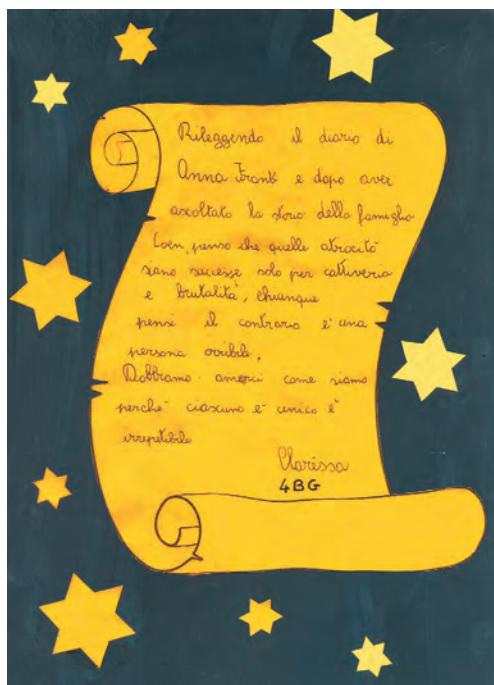 Rileggendo il diario di
Anna Frank e dopo aver
ascoltato la storia della famiglia
Coen, penso che quelle atrocità
siano successe solo per cattiveria
e brutalità, chiunque
pensi il contrario è una
persona orribile,
Dobbiamo amarci come siamo
perchè ciascuno è unico è
irrepetibile
Clarissa
4BG